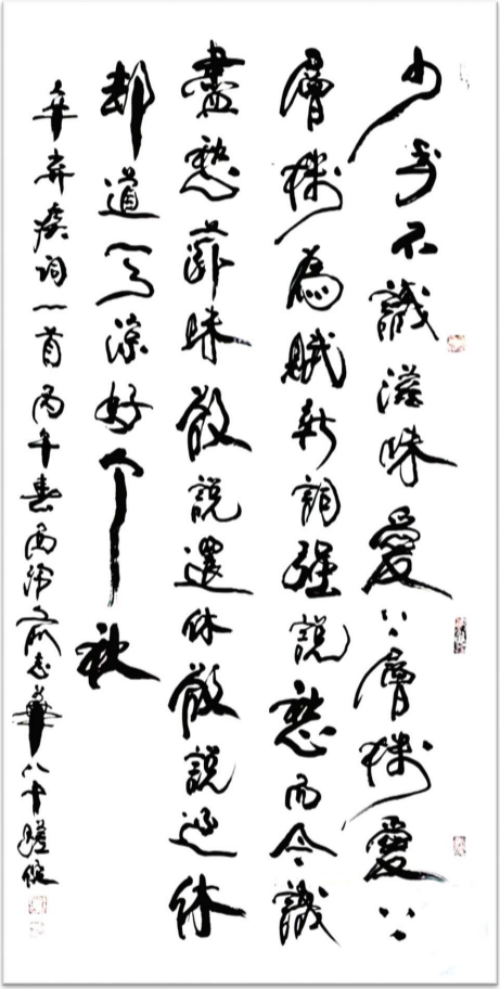 少年不識滋味愛上層樓愛上
層樓為賦新詞強說愁而今識
盡愁滋味欲說還休欲說還休
却道天涼好个秋
辛弃疾詞一首丙午春西志華八十